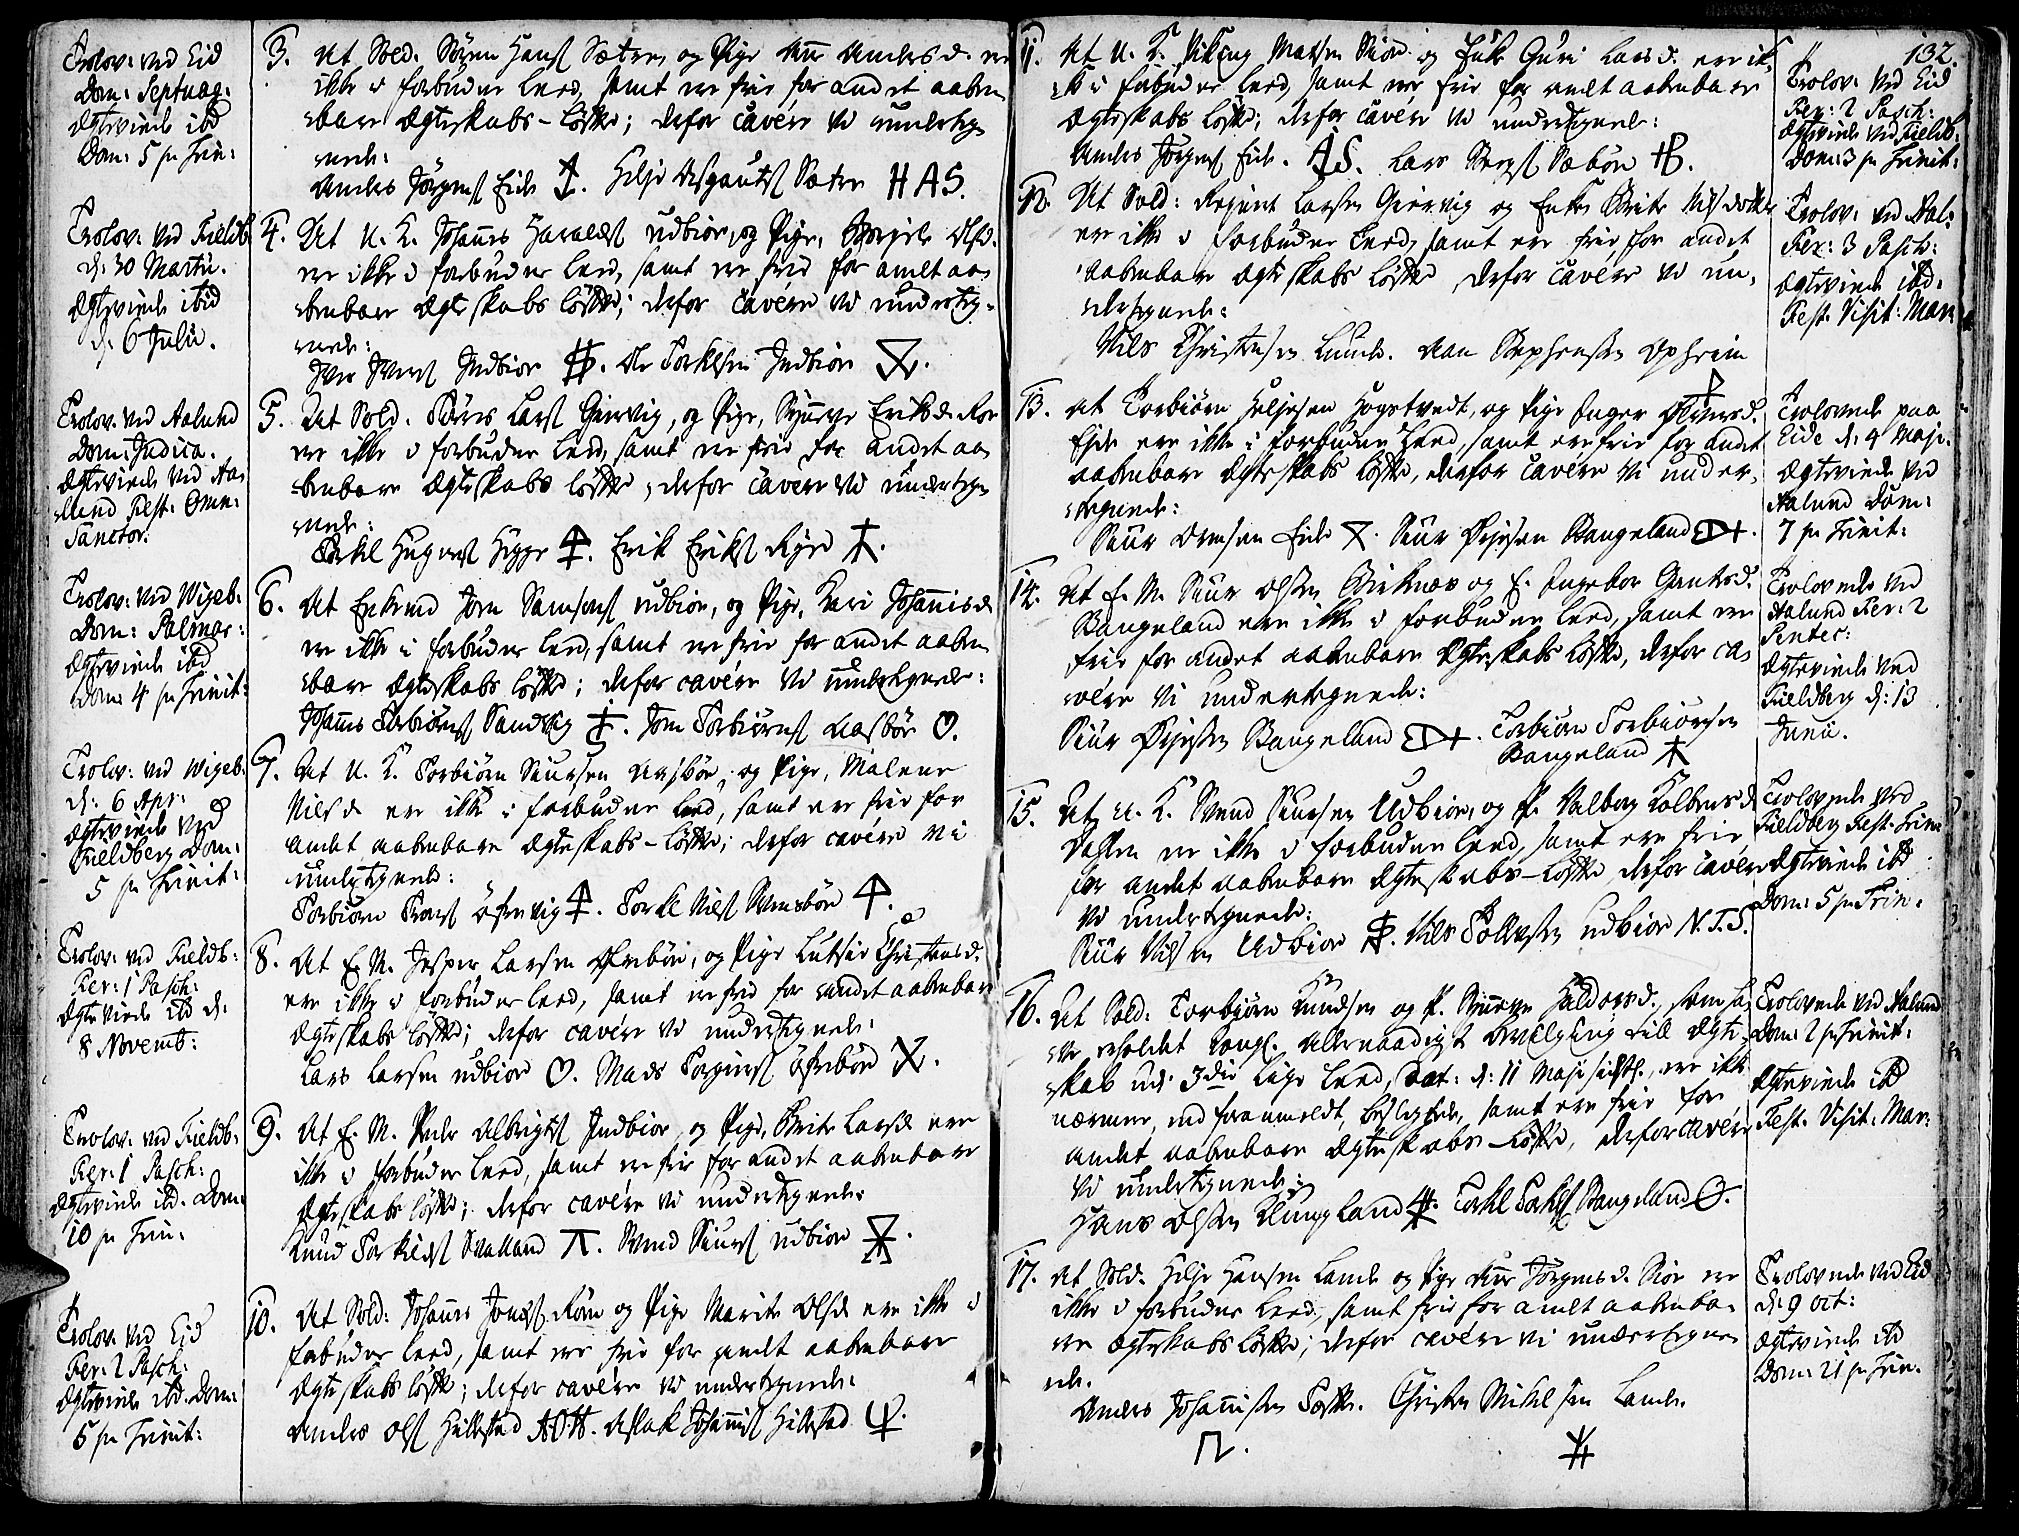 Trolov: ved Eid
Dom: Septuag:
Ægteviede ibd
Dom: 5 p Trin:
3. At Sold. Søren Hans Sætre, og Pige Ane Andersd. ere
ikke i forbuden Leed, samt ere frie for andet aaben
bare Ægteskabs-Løfte; derfor cavére vi underteg
nede:
Anders Jörgens Eide. Helje Asgauts Sæter HAS.
Trolov: ved Fieldb
d: 30 Martii.
Ægteviede ibid
d. 6 Julii.
4. At U. K. Johannes Haralds Udbiore, og Pige, Olsd.
ere ikke i forbuden Leed, samt ere frie for andet aa
benbare Ægteskabs Løfte; derfor cavére vi underteg-
nede:
Iver Ivers Indbior. Ole Torkelsen Indbior
Trolov: ved Aalund
Dom: Judica.
Ægteviede ved Aa
lund Fest: Omn:
Sanctor:
5. At Sold. Lars Giervig, og Pige, Synneve Eriksd.
ere ikke i forbuden Leed, samt ere frie for andet aa
benbare Ægteskabs Løfte, derfor cavere vi underteg
nede:
Torkel Higge. Erik Eriks
Trolov: ved Wigeb:
Dom: Palmar:
Ægteviede ibd
Dom: 4 p Trinit:
6. At Enkemd Jon Samsons Udbior, og Pige, Kari Johannisd
ere ikke i forbuden Leed, samt ere frie for andet aaben
bare Ægteskabs Løfte; derfor cavére vi undertegnede:
Johannes Torbiörns Sandvig. Jon Torbiörns Aasbör
Trolov: ved Wigeb:
d: 6 Apr:
Ægteviede ved
Fieldberg Dom:
5 p Trinit:
7. At U. K. Torbiörn Siursen Aasbör, og Pige, Malene
Nilsd. ere ikke i forbuden Leed, samt ere frie for
andet aabenbare Ægteskabs-Løfte; derfor cavére vi
undertegnede:
Torbiörn Öfrevig. Torkel Nils
Trolov: ved Fieldb:
Fer: 1 Pasch:
Ægteviede ibd d:
8 Novemb:
8. At E. M. Jesper Larsen Öfrebör, og Pige Lutsie Christensd.
ere ikke i forbuden Leed, samt ere frie for andet aabenbare
Ægteskabs Løfte; derfor cavére vi undertegnede:
Lars Larsen Udbior. Mads Torgiers Öfrebör
Trolov: ved Fieldb:
Fer: 1 Pasch:
Ægteviede ibd. Dom:
10 p Trin:
9. At E. M. Peder Albrigts Indbior, og Pige, Brite Larsd. ere
ikke i forbuden Leed, samt ere frie for andet aabenbare
Ægteskabs Løfte; derfor cavére vi undertegnede:
Knud Torkilds Svalland. Svend Siurs Udbior
Trolov: ved Eid
Fer: 2 Pasch:
Ægteviede ibd. Dom:
5 p Trinit:
10. At Sold: Johannes Jons Röen og Pige Marite Olsd. ere ikke i
forbuden Leed, samt ere frie for andet aabenbare
Ægteskabs Løfte; derfor cavére vi undertegnede:
Anders Ols Hillestad AOH. Aslak Johannis Hillestad
132.
11. At U. K. Viking Matsen Skior og Enke Guri Larsd. ere ik
ke i forbuden Leed, samt ere frie for andet aabenbare
Ægteskabs Løfte; derfor cavére vi undertegnede:
Anders Jörgens Eide. Lars Sæbör
Trolov: ved Eid
Fer: 2 Pasch:
Ægteviede ved Fieldb:
Dom: 3 p Trinit:
12. At Sold: Larsen Giervig og Enken Brite Nilsdotter
ere ikke i forbuden Leed, samt ere frie for andet
aabenbare Ægteskabs Løfte, derfor cavére vi un-
dertegnede:
Nils Christensen Lunde. Stephensen Opheim
Trolov: ved Aal:
Fer: 3 Pasch:
Ægteviede ibd:
Fest. Visit: Mar:
13. At Torbiörn Heljesen Hogstvedt, og Pige Inger
Eide ere ikke i forbuden Leed, samt ere frie for andet
aabenbare Ægteskabs Løfte, derfor cavére vi under-
tegnede:
Siur Omsen Eide. Siur Bangeland
Trolovede paa
Eide d: 4 Maji.
Ægteviede ved
Aalund Dom:
7 p Trinit:
14. At E. M. Siur Olsen Birknæs og E. Ingebor Gautesd.
Bangeland ere ikke i forbuden Leed, samt ere
frie for andet aabenbare Ægteskabs Løfte, derfor ca
vére vi undertegnede:
Siur Bangeland. Torbiörn Torbiörnsen
Bangeland
Trolovede ved
Aalund Fer: 2
Pentec:
Ægteviede ved
Fieldberg d: 13
Junii.
15. At U. K. Svend Siursen Udbior, og P. Valborg Kolbensd
ere ikke i forbuden Leed, samt ere frie
for andet aabenbare Ægteskabs-Løfte, derfor cavére
vi undertegnede:
Siur Nilsen Udbior. Nils Tollefsen Udbior N.T.S.
Trolovede ved
Fieldberg Fest: Trin:
Ægteviede ibd
Dom: 5 p Trin:
16. At Sold: Torbiörn Knudsen og P. Synneve Haldorsd., som ha
ve erholdet Kongl. allernaadigst Bevilgling till Ægte-
skab udi 3die Lige Leed, Dat: d: 11 Maji sidstl., ere ikke
nærmere, end foranmeldt, beslegtede, samt ere frie for
andet aabenbare Ægteskabs-Løfte, derfor cavére
vi undertegnede:
Hans Olsen Klungland. Torkel Torkels Bangeland
Trolovede ved Aalund
Dom: 2 p Trinit:
Ægteviede ibd
Fest. Visit: Mar:
17. At Sold. Helje Hansen Lande og Pige Ane Jörgensd. Skior ere
ikke i forbuden Leed, samt frie for andet aabenba-
re Ægteskabs Løfte; derfor cavére vi undertegne
de.
Anders Johannissen Toske. Christen Mikkelsen Lande.
Trolovede ved Eid
d: 9 Oct:
Ægteviede ibd
Dom: 21 p Trin.